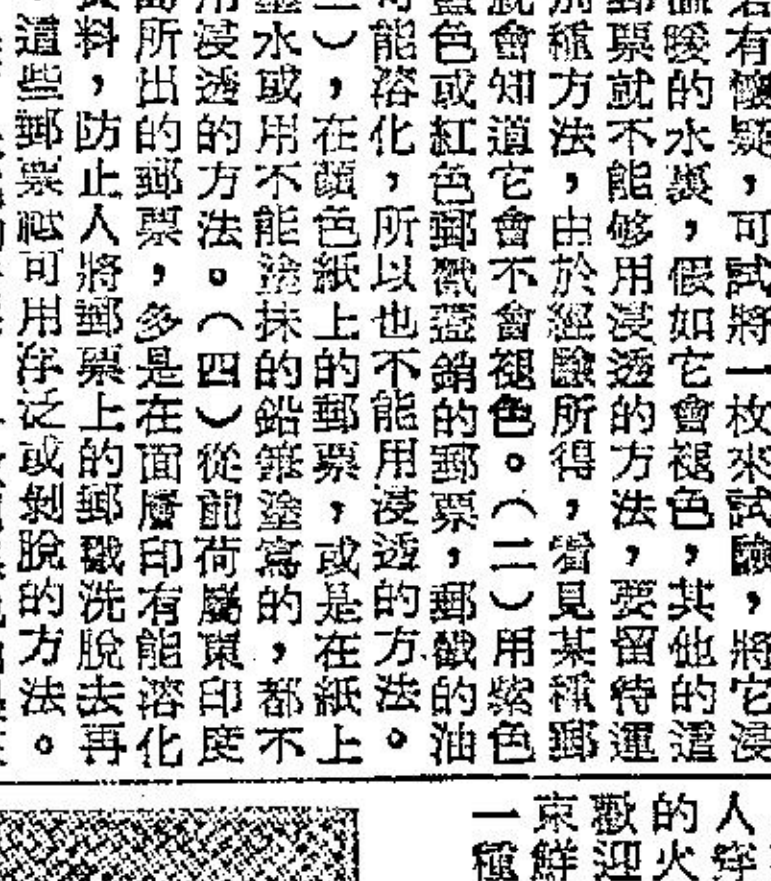 若有懷疑，可試將一枚來試驗，將它浸
溫暖的水裏，假如它會褪色，其他的這
郵票就不能够用浸透的方法，要留待運
別種方法，由於經驗所得，看見某種郵
就會知道它會不會褪色。（二）用紫色
藍色或紅色郵戳蓋銷的郵票，郵戳的油
可能溶化，所以也不能用浸透的方法。
三），在顏色紙上的郵票，或是在紙上
墨水或用不能塗抹的鉛筆塗寫的，都不
用浸透的方法。（四）從前荷屬東印度
所出的郵票，多是在面層印有能溶化
料，防止人將郵票上的郵戳洗脫去再
這些郵票祗可用浮泛或剝脫的方法。
人穿
的火
歡迎
束鮮
一種